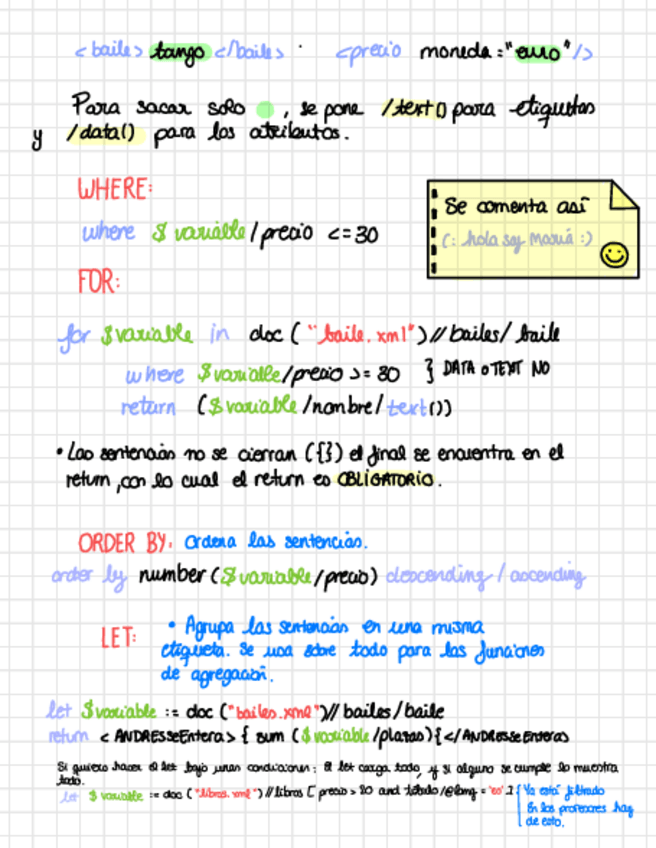 <baile> tango </baile> <precio moneda="euro"/>
Para sacar solo , se pone /text() para etiquetas
y /data() para los atributos.
WHERE:
where $variable/precio <=30
Se comenta así
(: hola soy María :)
FOR:
for $variable in doc ("baile.xml")//bailes/baile
where $variable/precio >= 30 } DATA o TEXT NO
return ($variable/nombre/text())
• Las sentencias no se cierran ({}) el final se encuentra en el
return, con lo cual el return es OBLIGATORIO.
ORDER BY: Ordena las sentencias.
order by number ($variable/precio) descending / ascending
LET: • Agrupa las sentencias en una misma
etiqueta. Se usa sobre todo para las funciones
de agregación.
let $variable := doc ("bailes.xml")//bailes/baile
return <ANDRESseEntera> { sum ($variable/plazas){</ANDRESseEntera>
Si quiero hacer el let bajo unas condiciones: El let carga todo, y si alguno se cumple lo muestra
todo.
let $variable := doc ("libros.xml")//libros [ precio > 20 and titulo/@lang = "es" ] { Ya está filtrado
En los profesores hay
de esto.